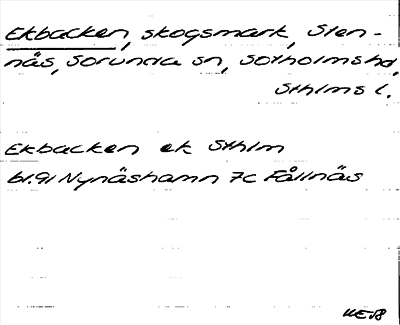 Ekbacken, skogsmark, Sten-
näs, Sorunda sn, Sotholms hd,
Sthlms l.
Ekbacken ek Sthlm
bl. 91 Nynäshamn 7c Fållnäs